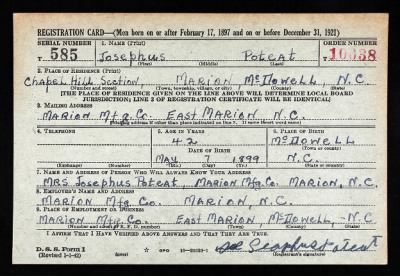 REGISTRATION CARD—(Men born on or after February 17, 1897 and on or before December 31, 1921)
SERIAL NUMBER 1. NAME (Print) ORDER NUMBER
T 585 Josephus Poteat T 10038
(First) (Middle) (Last)
2. PLACE OF RESIDENCE (Print)
Chapel Hill Section MARION McDowell, N.C.
(Number and street) (Town, township, village, or city) (County) (State)
[THE PLACE OF RESIDENCE GIVEN ON THE LINE ABOVE WILL DETERMINE LOCAL BOARD
JURISDICTION; LINE 2 OF REGISTRATION CERTIFICATE WILL BE IDENTICAL]
3. MAILING ADDRESS
MARION Mfg. Co. EAST MARION, N.C.
[Mailing address if other than place indicated on line 2. If same insert word same]
4. TELEPHONE 5. AGE IN YEARS 6. PLACE OF BIRTH
42 McDowell
DATE OF BIRTH (Town or county)
MAY 7 1899 N.C.
(Exchange) (Number) (Mo.) (Day) (Yr.) (State or country)
7. NAME AND ADDRESS OF PERSON WHO WILL ALWAYS KNOW YOUR ADDRESS
MRS Josephus Poteat, MARION Mfg. Co. MARION, N.C.
8. EMPLOYER'S NAME AND ADDRESS
MARION Mfg. Co. MARION, N.C.
9. PLACE OF EMPLOYMENT OR BUSINESS
MARION Mfg. Co. EAST MARION, McDowell, N.C.
(Number and street or R. F. D. number) (Town) (County) (State)
I AFFIRM THAT I HAVE VERIFIED ABOVE ANSWERS AND THAT THEY ARE TRUE.
D. S. S. Form 1
(Revised 1-1-42) (over) GPO